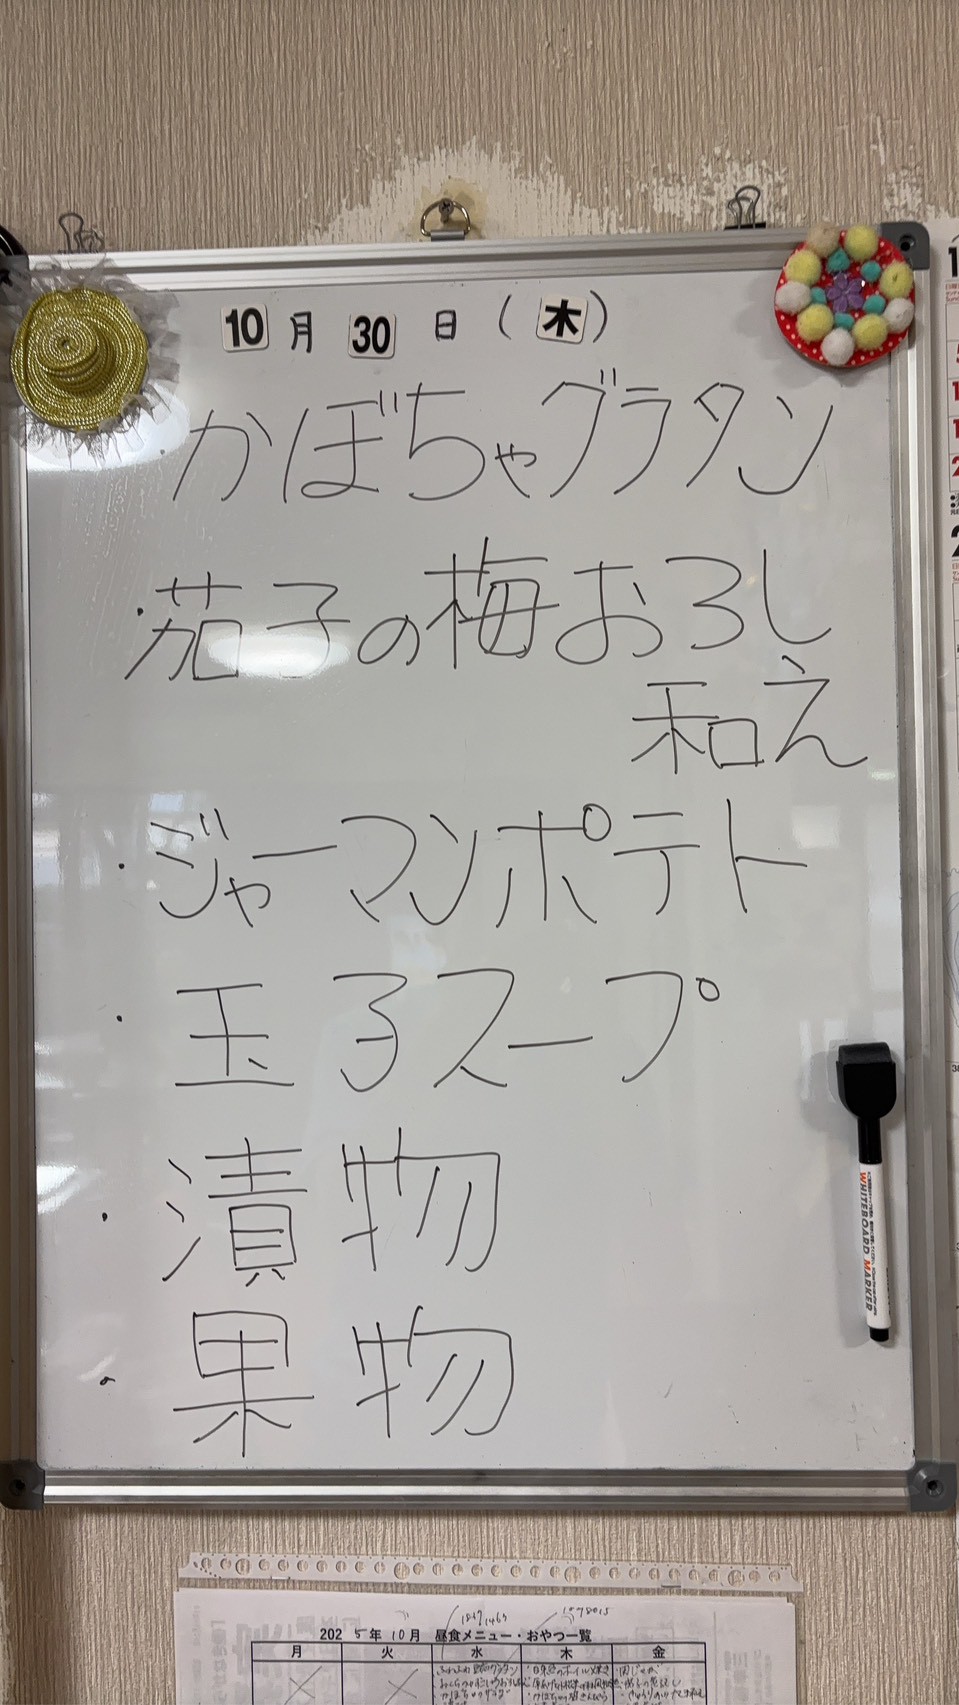 10月30日(木)
・かぼちゃグラタン
・茄子の梅おろし
和え
・ジャーマンポテト
・玉子スープ
・漬物
・果物
WHITEBOARD MARKER
2025年10月 昼食メニュー・おやつ一覧
月 火 水 木 金